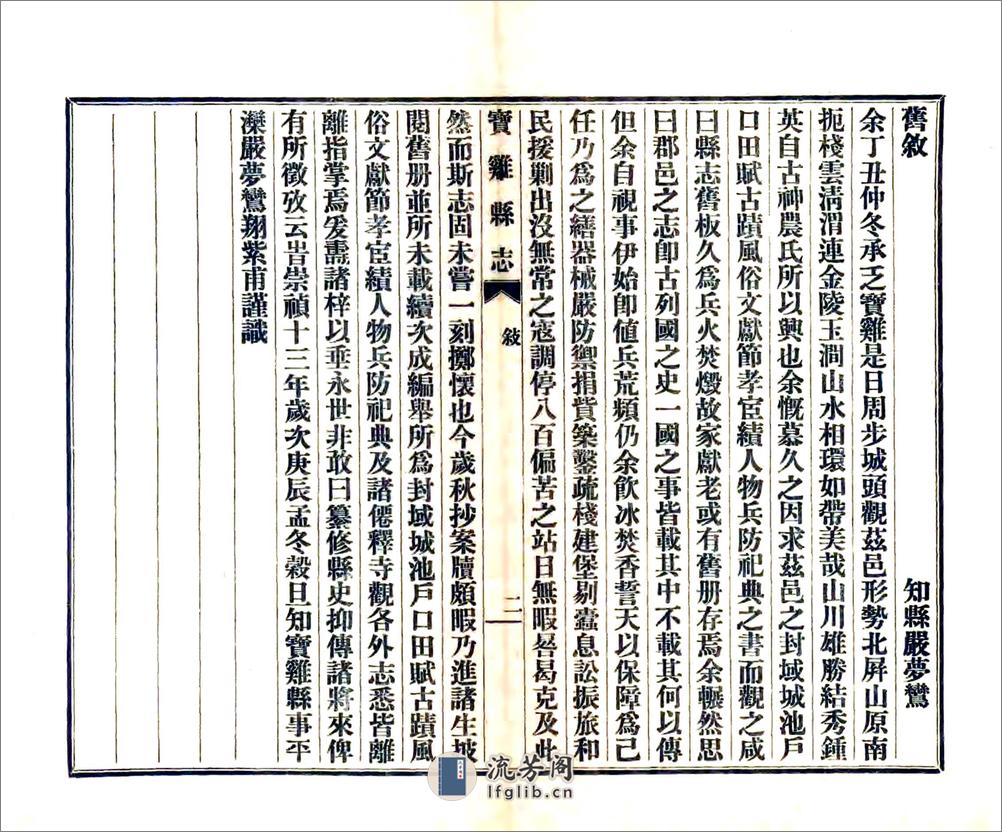 舊敘
知縣嚴夢鸞
余丁丑仲冬承乏寶雞是日周步城頭觀茲邑形勢北屏山原南
扼棧雲淸渭連金陵玉澗山水相環如帶美哉山川雄勝結秀鍾
英自古神農氏所以興也余慨慕久之因求茲邑之封域城池戶
口田賦古蹟風俗文獻節孝宦績人物兵防祀典之書而觀之咸
曰縣志舊板久爲兵火焚燬故家獻老或有舊册存焉余囅然思
曰郡邑之志卽古列國之史一國之事皆載其中不載其何以傳
但余自視事伊始卽値兵荒頻仍余飮冰焚香誓天以保障爲己
任乃爲之繕器械嚴防禦捐貲築鑿疏棧建堡剔蠹息訟振旅和
民援剿出沒無常之寇調停八百偏苦之站日無暇晷曷克及此
寶雞縣志
敘
二
然而斯志固未嘗一刻擲懷也今歲秋抄案牘頗暇乃進諸生披
閱舊册並所未載續次成編舉所爲封域城池戶口田賦古蹟風
俗文獻節孝宦績人物兵防祀典及諸僊釋寺觀各外志悉皆離
離指掌焉爰壽諸梓以垂永世非敢曰纂修縣史抑傳諸將來俾
有所徵攷云旹崇禎十三年歲次庚辰孟冬穀旦知寶雞縣事平
灤嚴夢鸞翔紫甫謹識
流芳阁
lfglib.cn